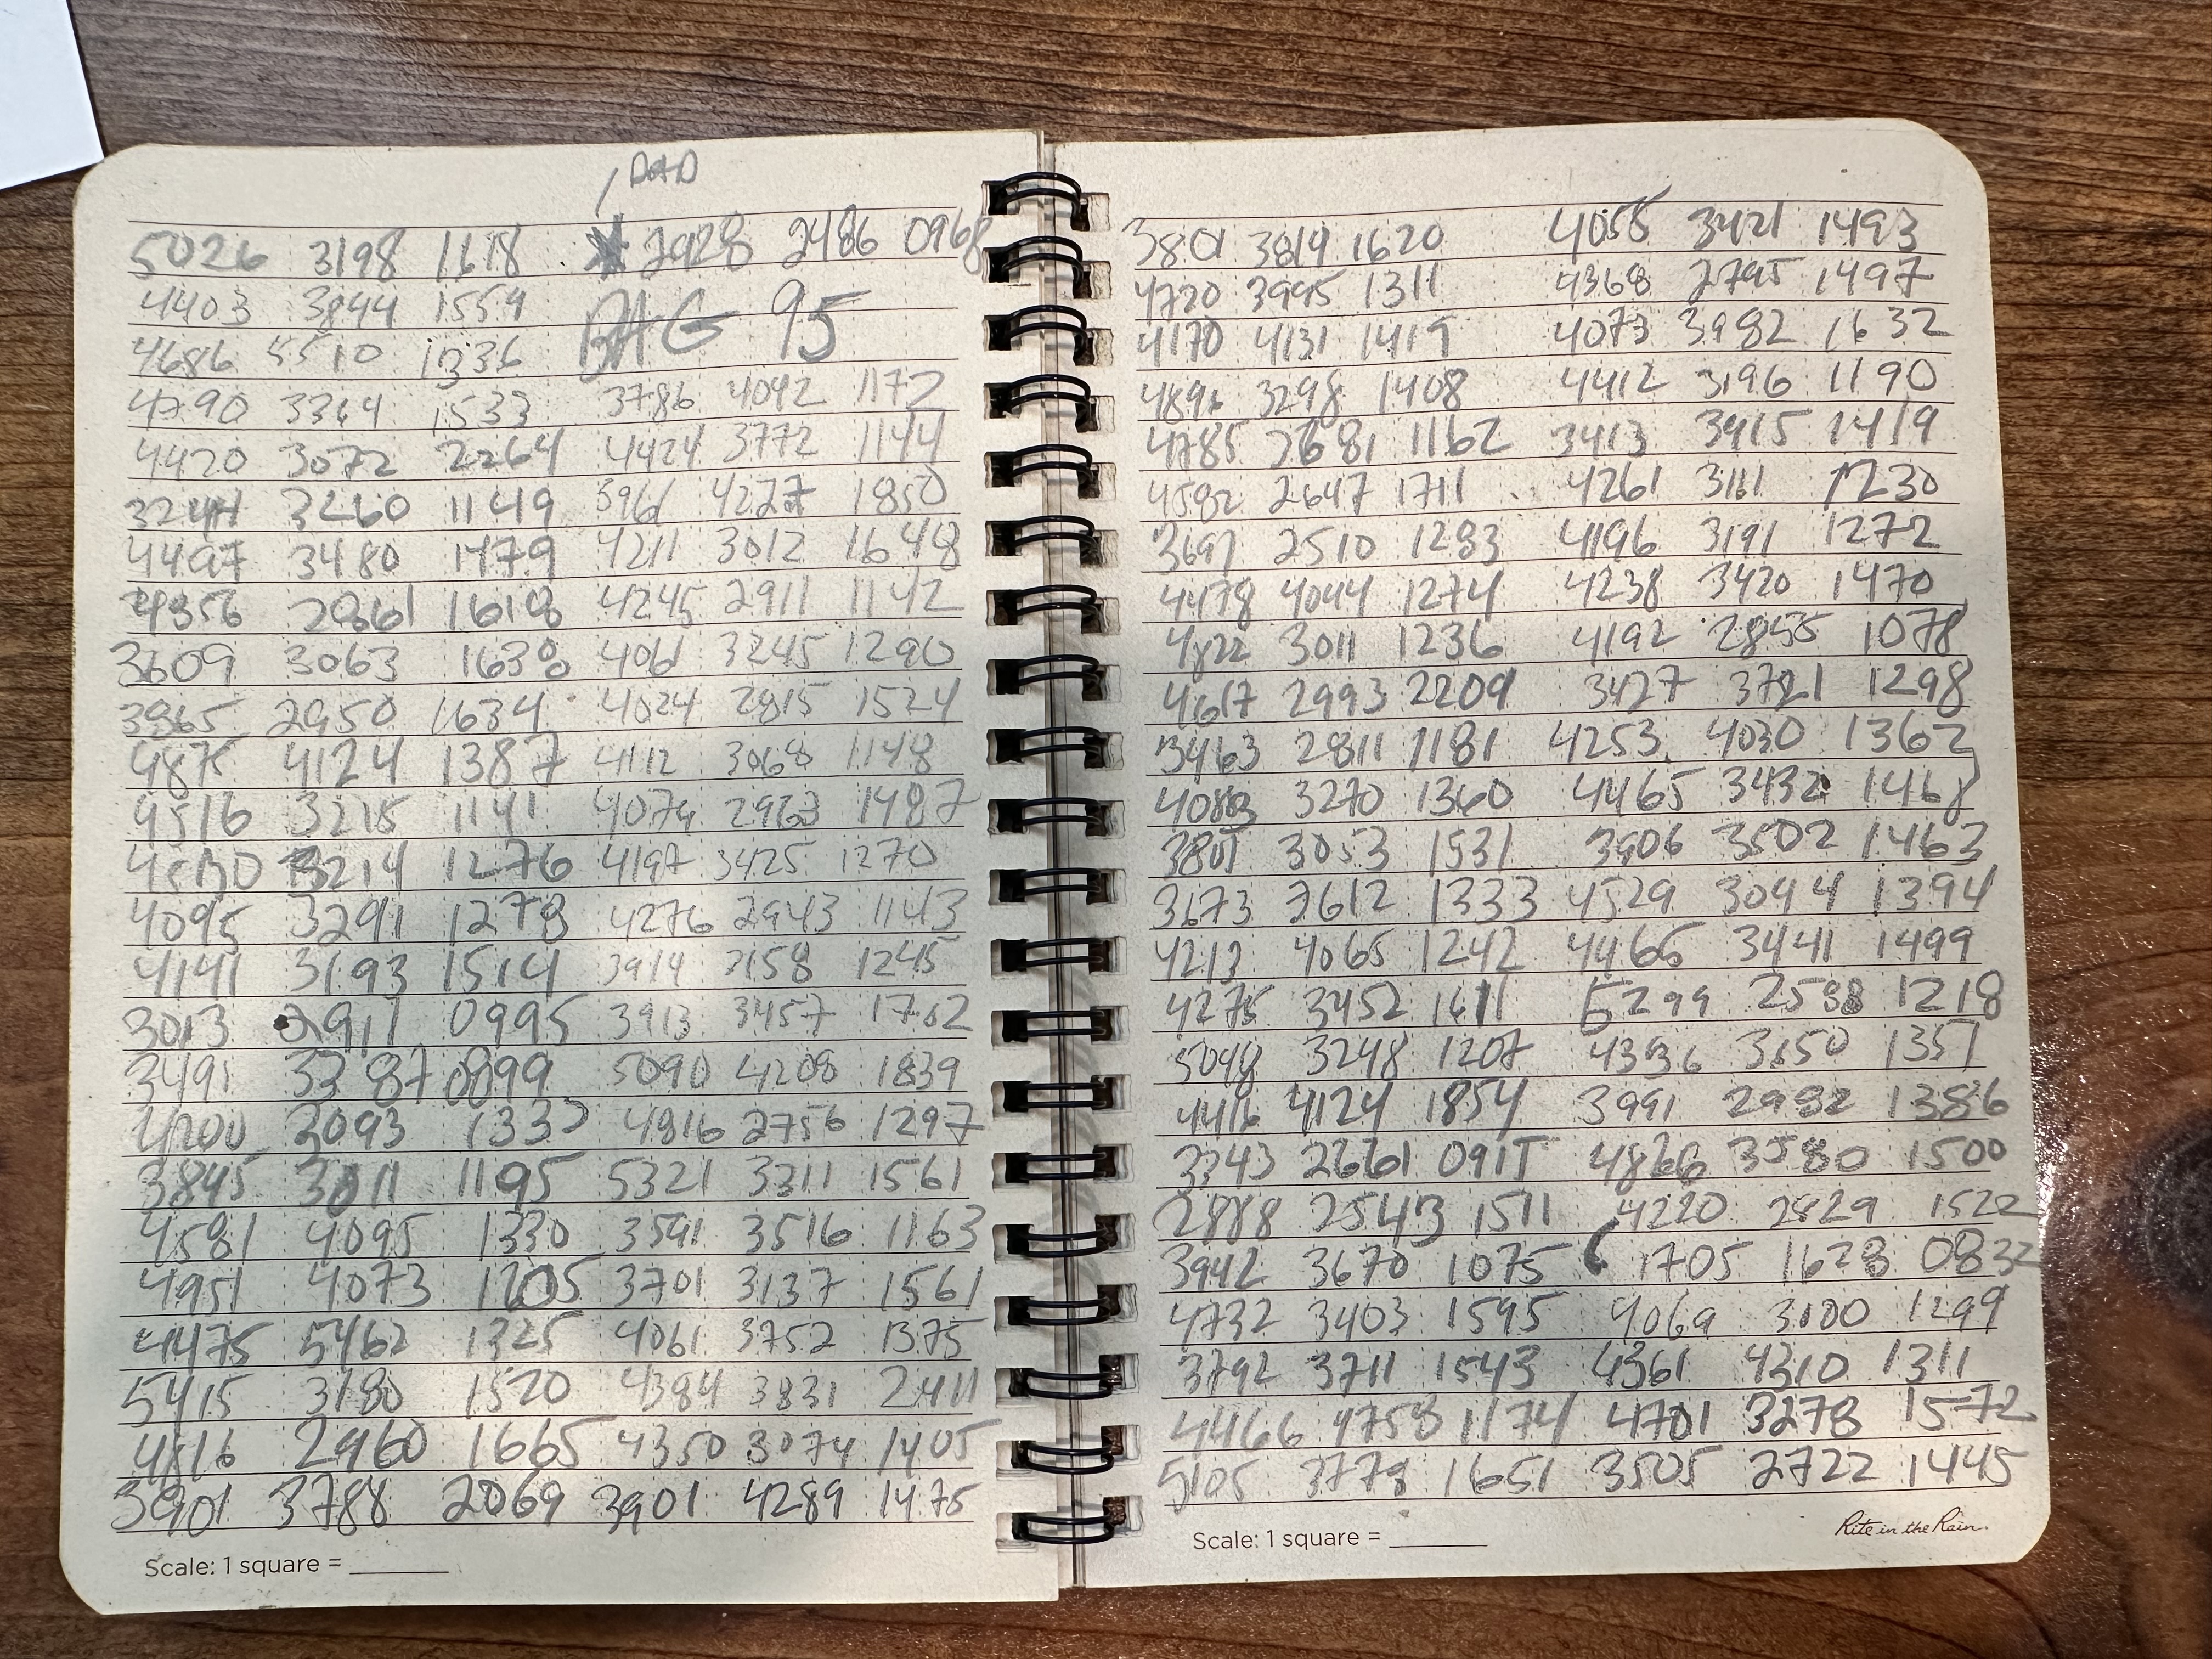 DAD
5026 3198 1618 * 2928 2486 0968
4403 3844 1559 BAG 95
4686 5510 1336
4790 3364 1533 3786 4042 1172
4420 3072 2264 4424 3772 1144
3244 3260 1149 3961 4277 1850
4497 3480 1479 4211 3012 1648
4356 2861 1618 4245 2911 1142
3609 3063 1638 4061 3245 1290
3965 2950 1634 4024 2815 1524
4875 4124 1387 4112 3068 1148
4516 3215 1141 4074 2963 1487
3214 1276 4197 3425 1270
4095 3291 1278 4276 2943 1143
4141 3193 1514 3914 3158 1245
3013 2911 0995 3913 3457 1762
3491 3387 0899 5090 4208 1839
4200 3093 1333 4816 2756 1297
3845 3011 1195 5321 3311 1561
4581 4095 1330 3591 3516 1163
4951 4073 1205 3701 3137 1561
4475 5462 1325 4061 3752 1375
5415 3180 1520 4384 3831 2411
4816 2960 1665 4350 3074 1405
3901 3788 2069 3901 4289 1475
Scale: 1 square = ______
3801 3814 1620 4055 3421 1493
4720 3995 1311 4368 2795 1497
4170 4131 1419 4073 3982 1632
4896 3298 1408 4412 3196 1190
4785 2681 1162 3413 3415 1419
4582 2647 1711 4261 3111 1230
3697 2510 1283 4196 3191 1272
4478 4044 1274 4238 3420 1470
4822 3011 1236 4192 2855 1078
4617 2993 2209 3427 3721 1298
3463 2811 1181 4253 4030 1362
4083 3270 1360 4465 3432 1468
3801 3053 1531 3906 3502 1463
3673 2612 1333 4529 3044 1394
4213 4065 1242 4465 3441 1499
4275 3452 1611 5299 2588 1218
5048 3248 1207 4336 3150 1351
4416 4124 1854 3991 2982 1386
3343 2661 0911 4866 3580 1500
2888 2543 1511 4220 2829 1522
3942 3670 1075 1705 1628 0832
4732 3403 1595 4069 3100 1299
3792 3711 1543 4361 4310 1311
4466 4758 1174 4701 3278 1572
5105 3778 1651 3505 2722 1445
Scale: 1 square = ______
Rite in the Rain